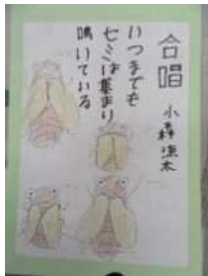 合唱
小森涼太
いつまでも
セミは集まり
鳴いている